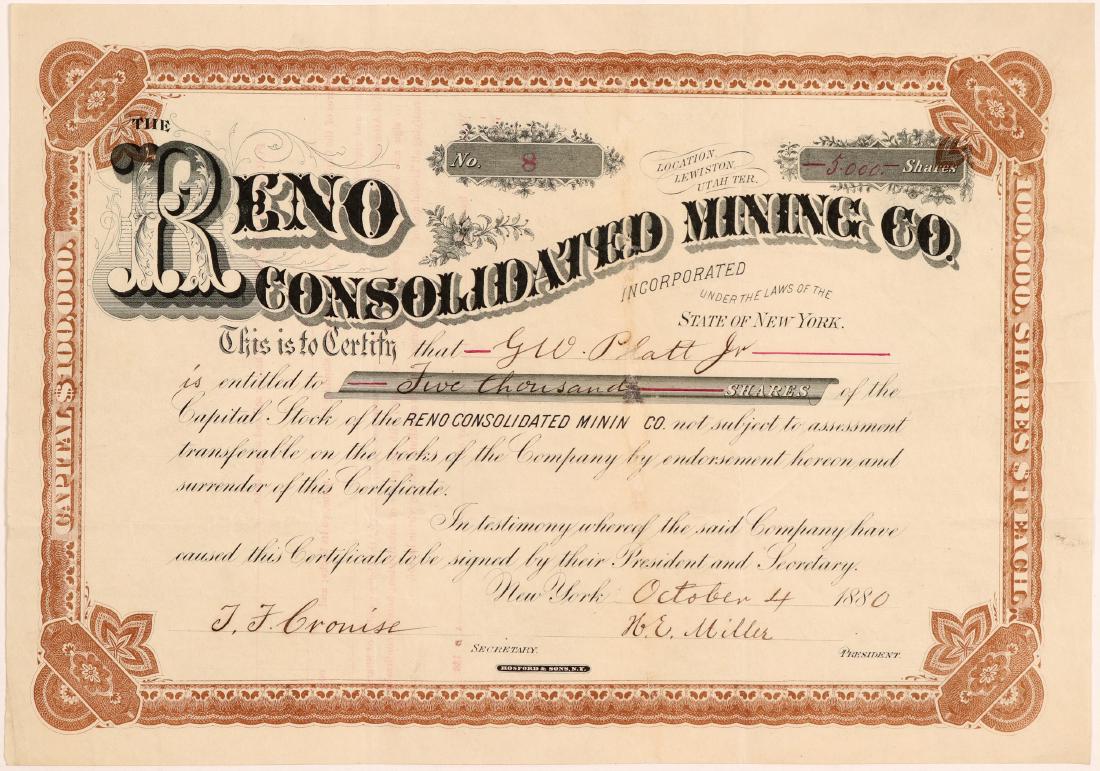 THE
RENO
CONSOLIDATED MINING CO.
No. 8
LOCATION,
LEWISTON,
UTAH TER.
—5000— Shares
INCORPORATED
UNDER THE LAWS OF THE
STATE OF NEW YORK.
This is to Certify that — G W. Platt Jr —
is entitled to — Five thousand — SHARES of the
Capital Stock of the RENO CONSOLIDATED MININ CO. not subject to assessment
transferable on the books of the Company by endorsement hereon and
surrender of this Certificate.
In testimony whereof the said Company have
caused this Certificate to be signed by their President and Secretary.
New York October 4 1880
T. F. Cronise H. E. Miller
SECRETARY. PRESIDENT.
HOSFORD & SONS, N.Y.
CAPITAL $100,000.
100,000. SHARES $1 EACH.